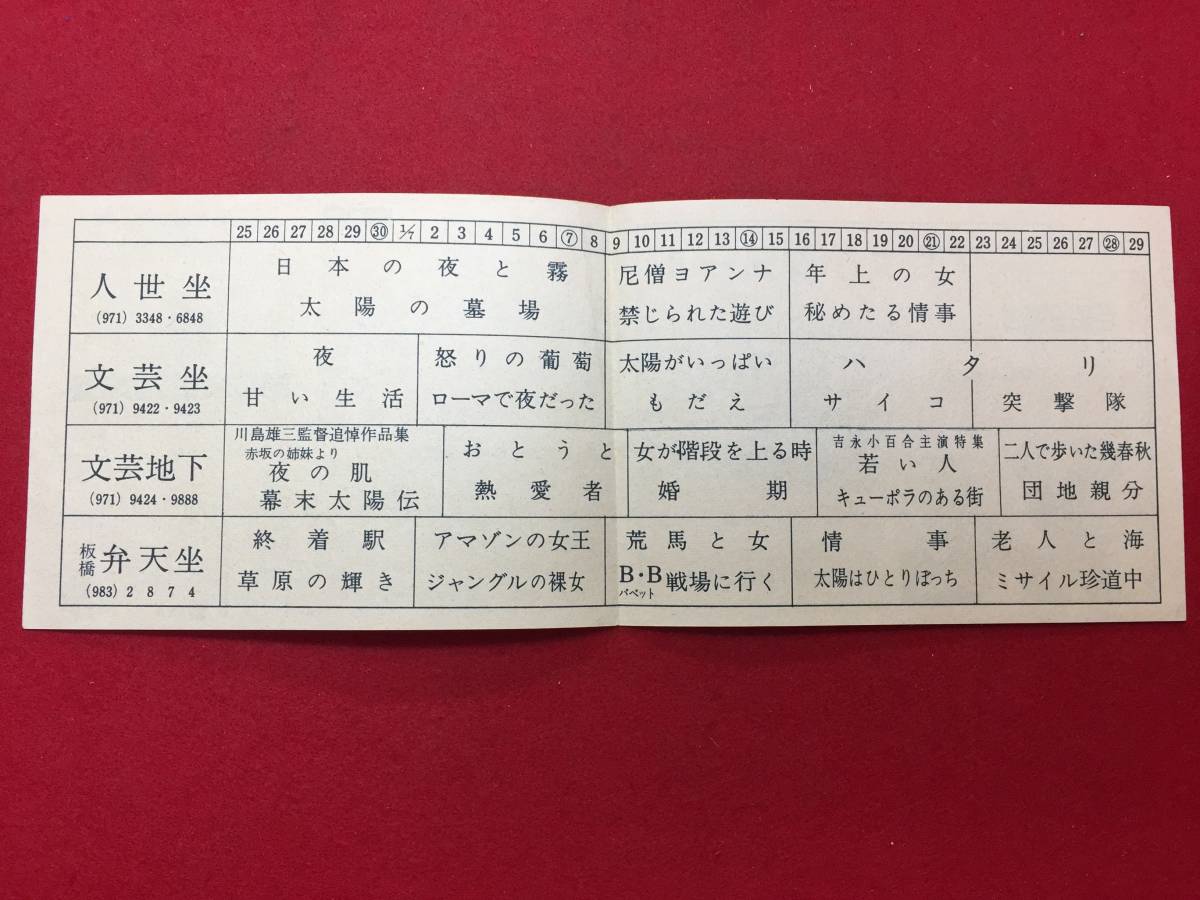 25 26 27 28 29 ㉚ 1/7 2 3 4 5 6 ⑦ 8 9 10 11 12 13 ⑭ 15 16 17 18 19 20 ㉑ 22 23 24 25 26 27 ㉘ 29
人世坐
(971) 3348・6848
日本の夜と霧
太陽の墓場
尼僧ヨアンナ
禁じられた遊び
年上の女
秘めたる情事
文芸坐
(971) 9422・9423
夜
甘い生活
怒りの葡萄
ローマで夜だった
太陽がいっぱい
もだえ
ハタリ
サイコ
突撃隊
文芸地下
(971) 9424・9888
川島雄三監督追悼作品集
赤坂の姉妹より
夜の肌
幕末太陽伝
おとうと
熱愛者
女が階段を上る時
婚期
吉永小百合主演特集
若い人
キューポラのある街
二人で歩いた幾春秋
団地親分
板橋 弁天坐
(983) 2874
終着駅
草原の輝き
アマゾンの女王
ジャングルの裸女
荒馬と女
B・B戦場に行く
バベット
情事
太陽はひとりぼっち
老人と海
ミサイル珍道中